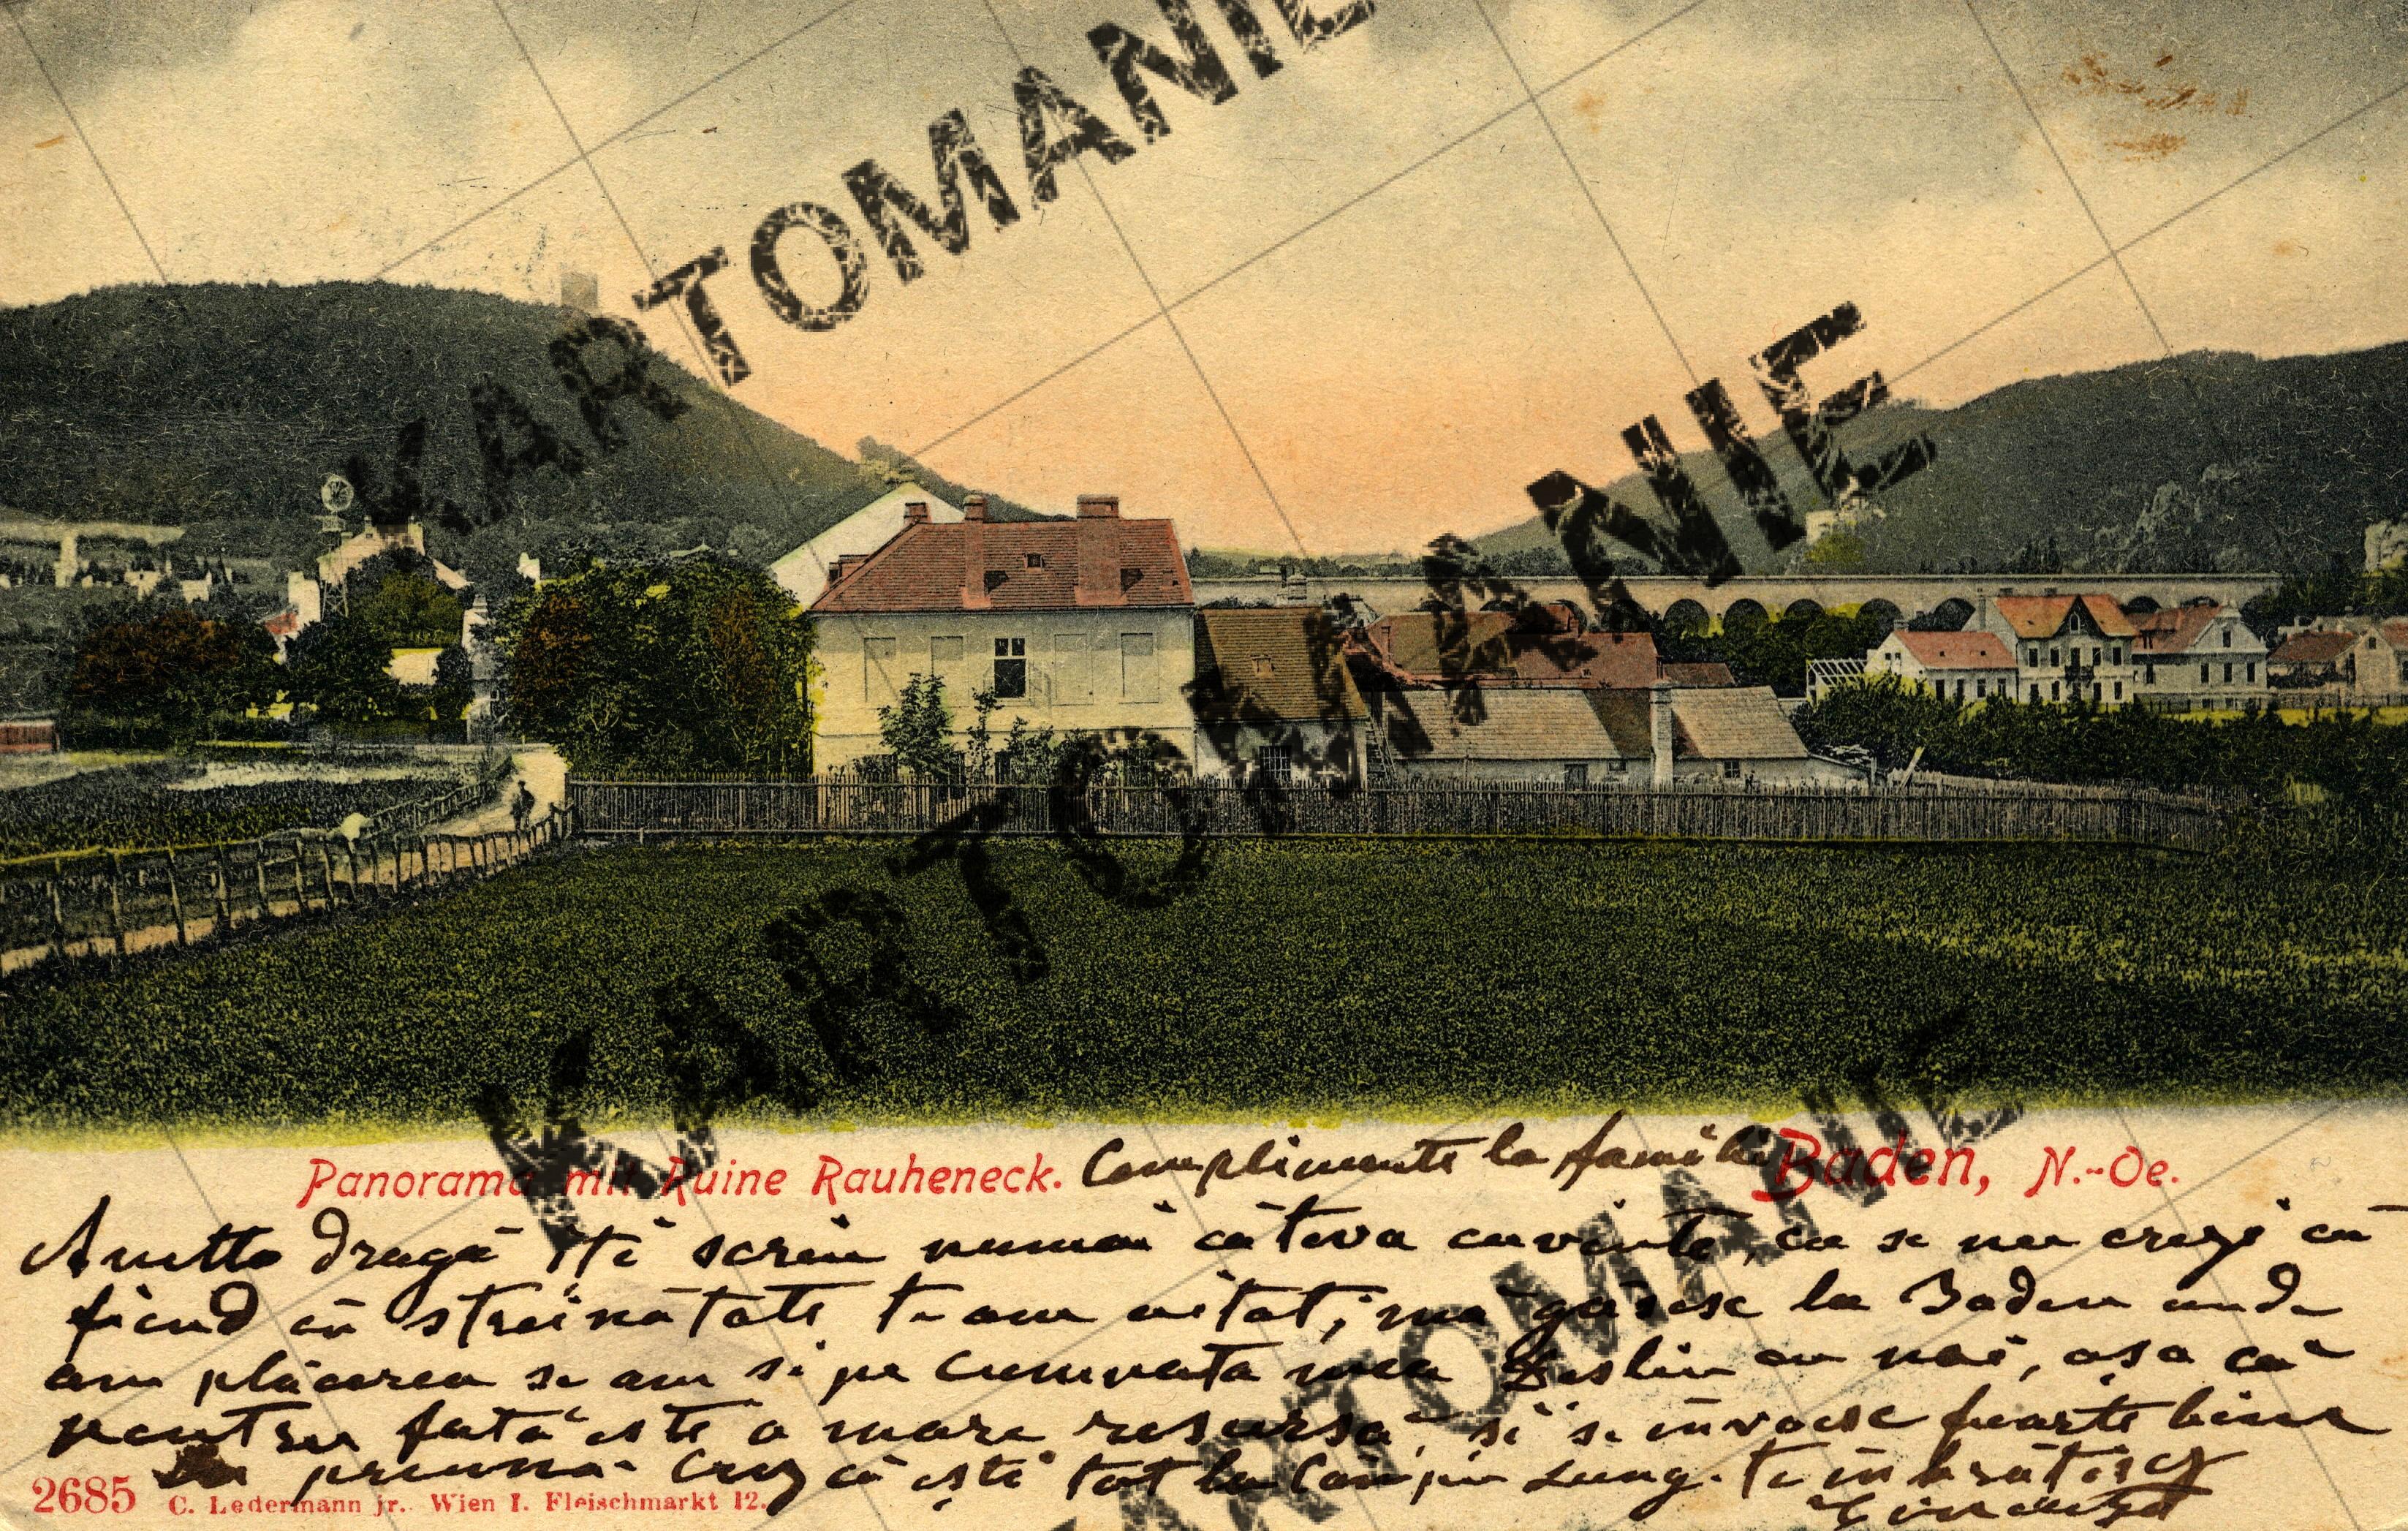 KARTOMANIE
KARTOMANIE
KARTOMANIE
Panorama mit Ruine Rauheneck.
Complimente la familie
Baden, N.-Oe.
draga îți scriu numai câteva cuvinte, ca se nu crezi că
fiend în streinătate te-am uitat; mă găsesc la Baden unde
am plăcerea se am și pe cumnata mea cu noi, așa că
pentru fată este o mare resursă, și se învoesc foarte bine
preună. Crez că ești tot la Câmpu Lung. te înbrățișez
2685 C. Ledermann jr. Wien I. Fleischmarkt 12.